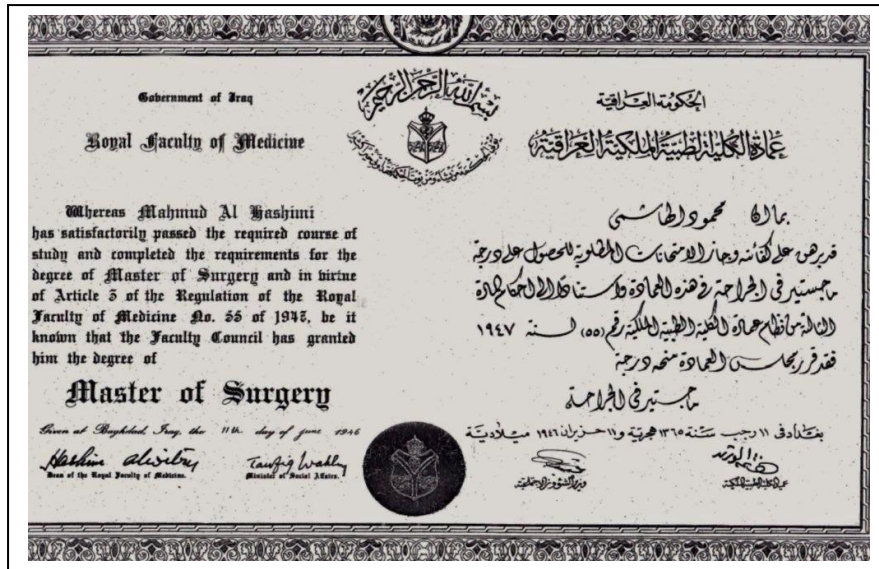 Government of Iraq
Royal Faculty of Medicine
Whereas Mahmud Al Hashimi
has satisfactorily passed the required course of
study and completed the requirements for the
degree of Master of Surgery and in virtue
of Article 3 of the Regulation of the Royal
Faculty of Medicine No. 55 of 1947, be it
known that the Faculty Council has granted
him the degree of
Master of Surgery
Given at Baghdad, Iraq, the 11th day of june 1946
Dean of the Royal Faculty of Medicine.
Minister of Social Affairs.
بسم الله الرحمن الرحيم
الحكومة العراقية
عمادة الكلية الطبية الملكية العراقية
بما ان محمود الهاشمي
قد برهن على كفائته وجاز الامتحانات المطلوبة للحصول على درجة
ماجستير في الجراحة في هذه العمادة واستنادا الى احكام المادة
الثالثة من نظام عمادة الكلية الطبية الملكية رقم (٥٥) لسنة ١٩٤٧
فقد قرر مجلس العمادة منحه درجة
ماجستير في الجراحة
بغداد في ١١ رجب سنة ١٣٦٥ هجرية و ١١ حزيران ١٩٤٦ ميلادية
عميد الكلية الطبية الملكية
وزير الشؤون الاجتماعية